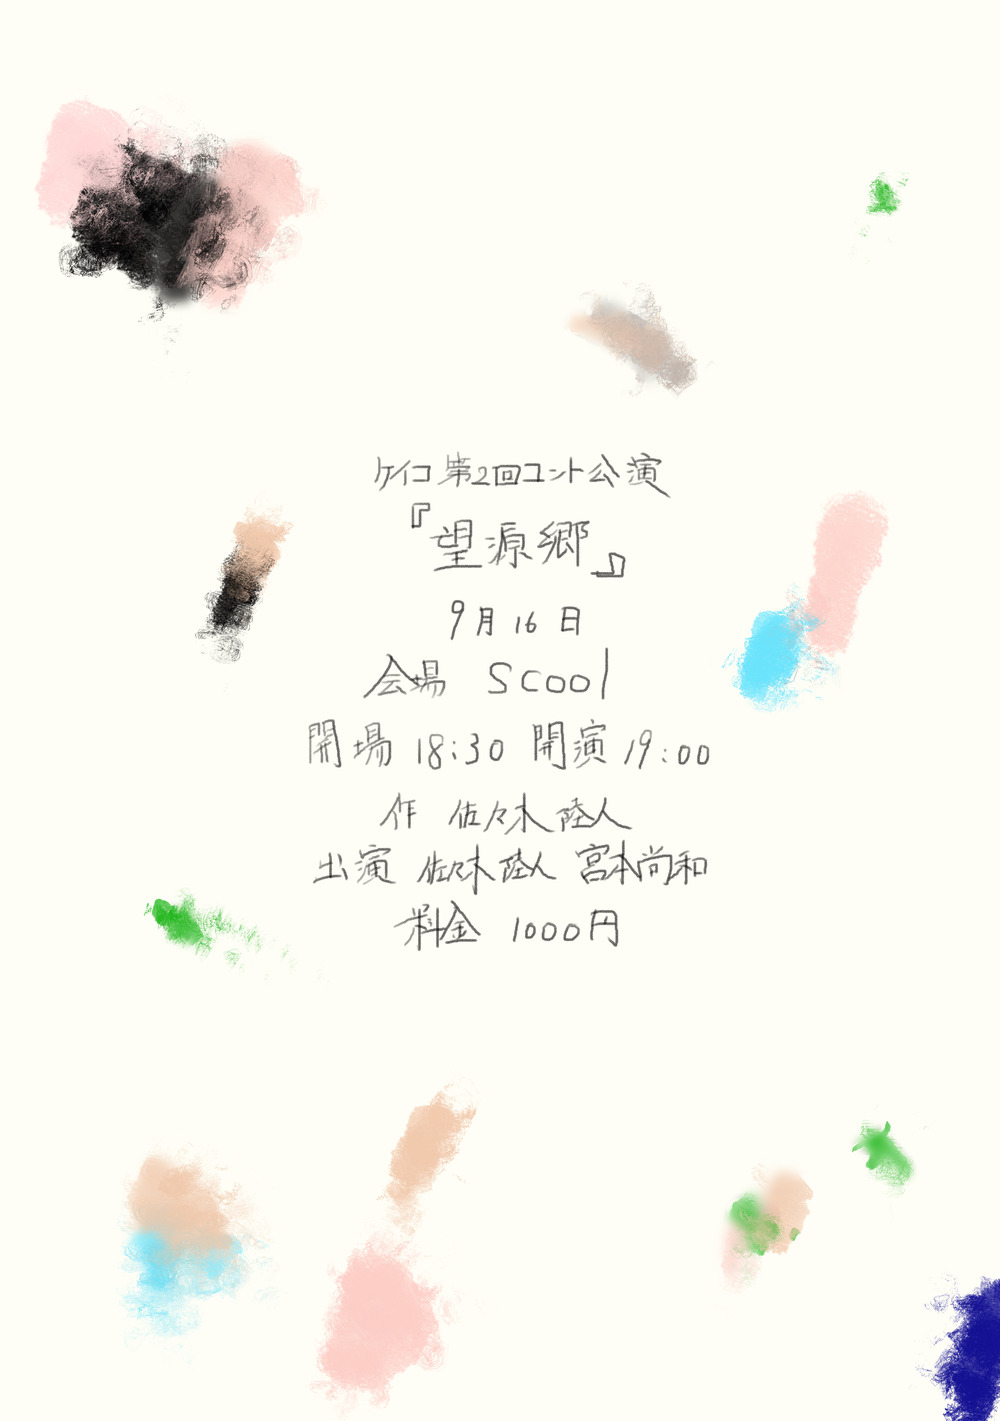 ケイコ第2回コント公演
『望源郷』
9月16日
会場 SCOOl
開場 18:30 開演 19:00
作 佐々木陸人
出演 佐々木陸人 宮本尚和
料金 1000円